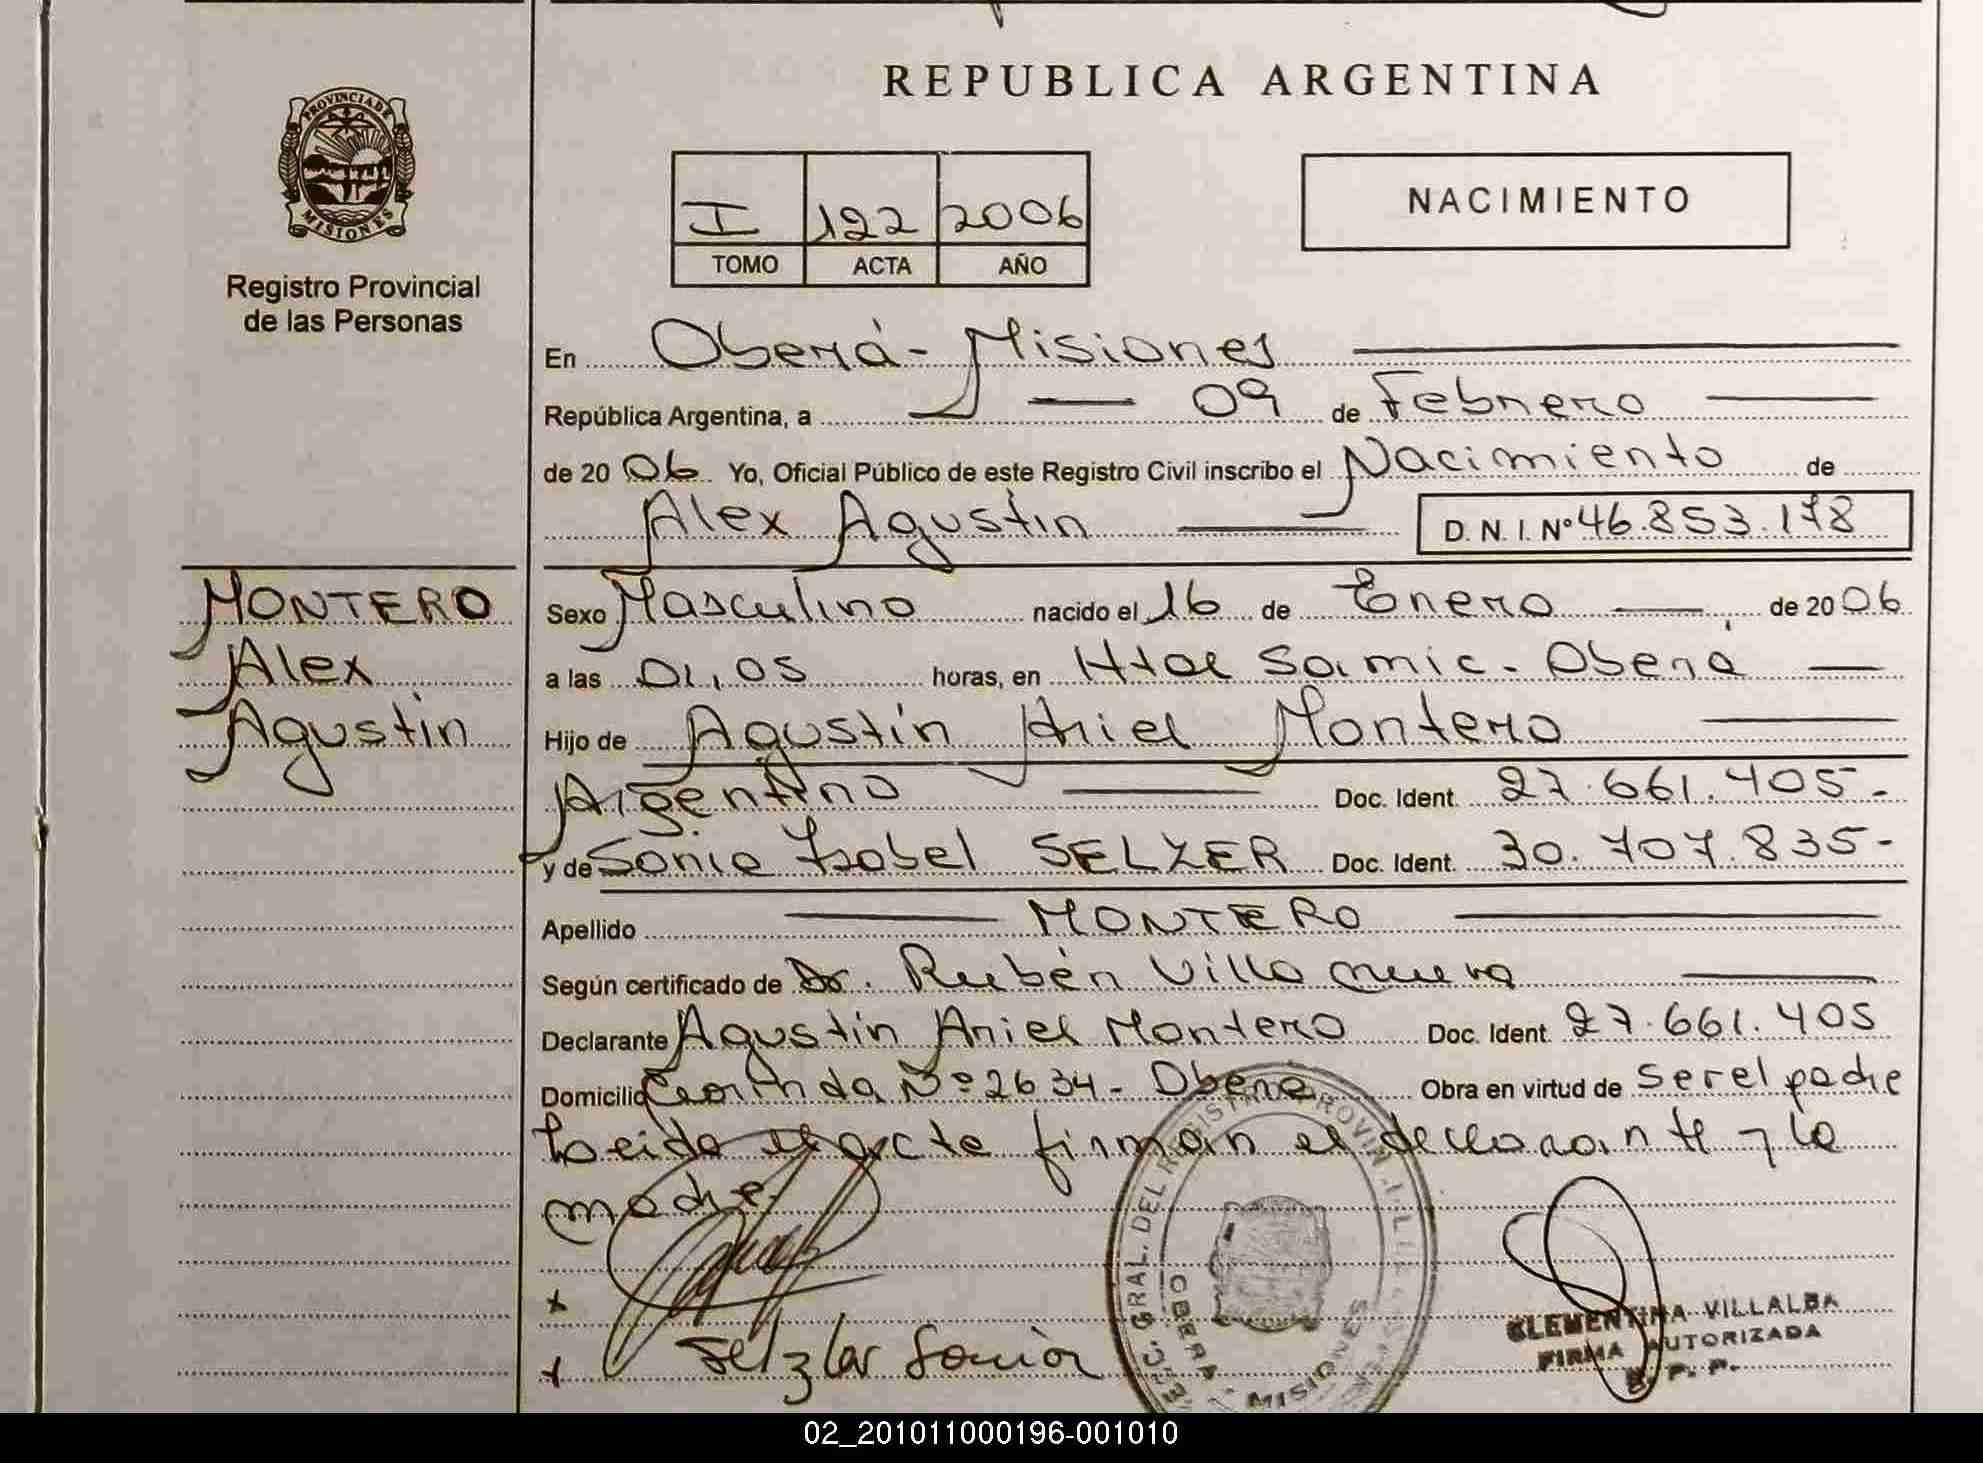 REPUBLICA ARGENTINA
PROVINCIA DE MISIONES
Registro Provincial
de las Personas
I 122 2006
TOMO ACTA AÑO
NACIMIENTO
En Oberá - Misiones
República Argentina, a 09 de Febrero
de 20 06 Yo, Oficial Público de este Registro Civil inscribo el Nacimiento de
Alex Agustín D. N. I. Nº 46.853.178
MONTERO
Alex
Agustín
Sexo Masculino nacido el 16 de Enero de 20 06
a las 01,05 horas, en Htal Samic - Oberá
Hijo de Agustín Ariel Montero
Argentino Doc. Ident. 27.661.405-
y de Sonia Isabel SELZER Doc. Ident. 30.707.835-
Apellido MONTERO
Según certificado de Dr. Rubén Villanueva
Declarante Agustín Ariel Montero Doc. Ident. 27.661.405
Domicilio Nº 2634 - Oberá Obra en virtud de ser el padre
Leida el acta firman el declarante y la
madre.
x
x Selzer Sonia
CLEMENTINA VILLALBA
FIRMA AUTORIZADA
R. P. P.
GRAL. DEL REGISTRO PROVIN
OBERA - MISIONES
02_201011000196-001010